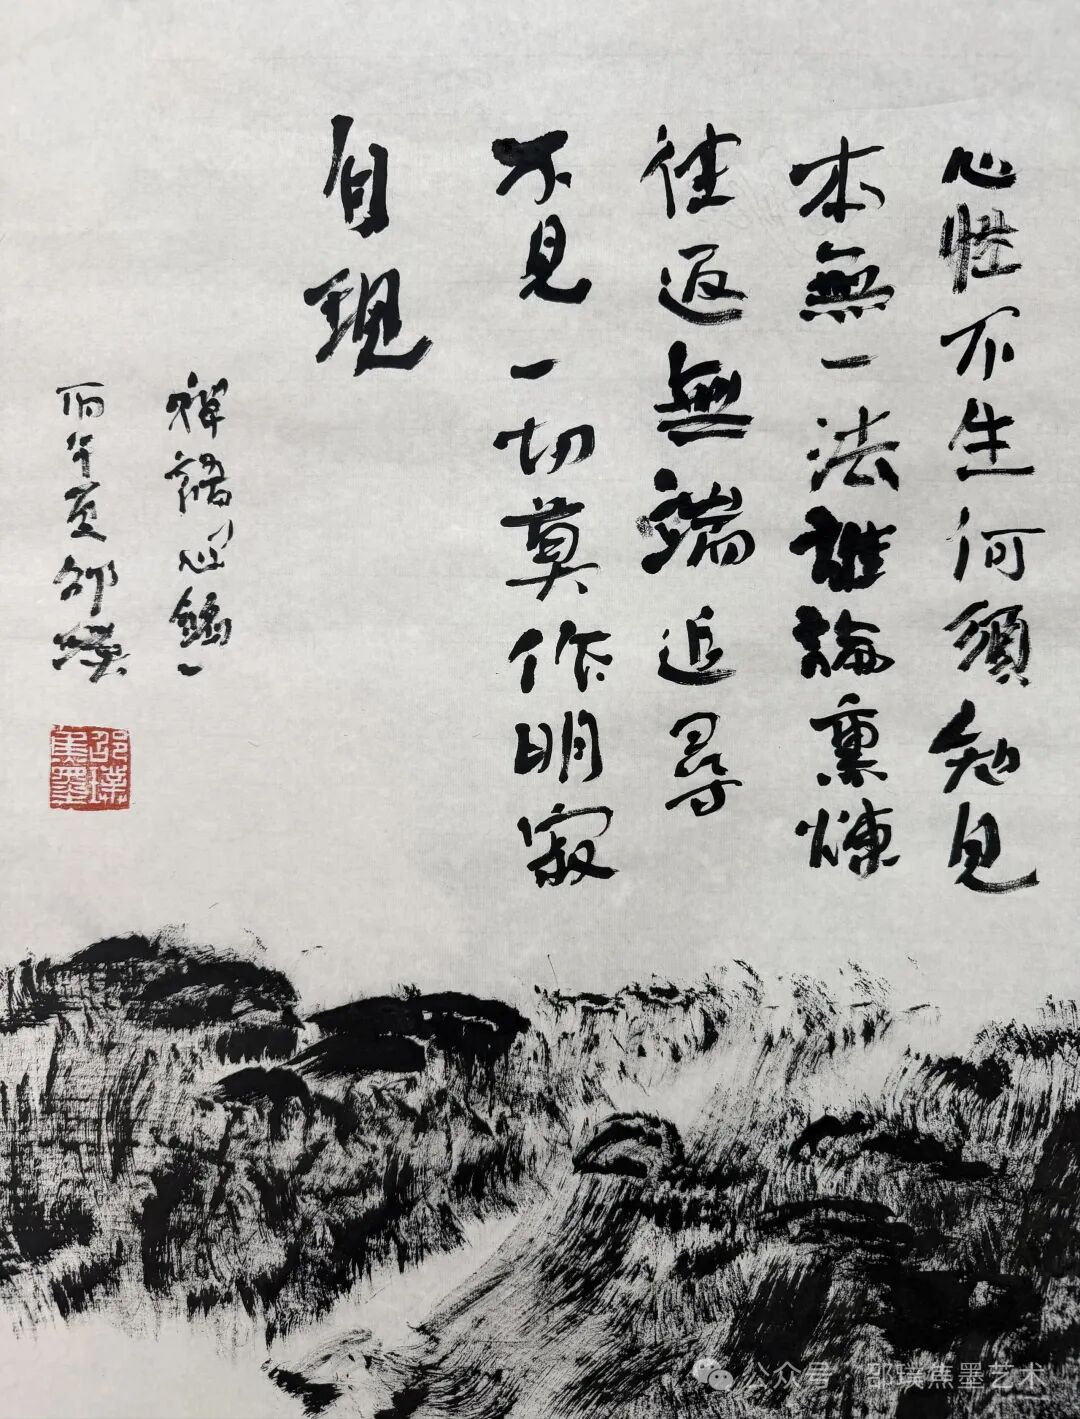 心性不生何須知見
本無一法誰論熏煉
往返無端追尋
不見一切莫作明寂
自現
禪語心銘一
丙午夏邵璞
邵璞焦墨
公众号 · 邵璞焦墨艺术